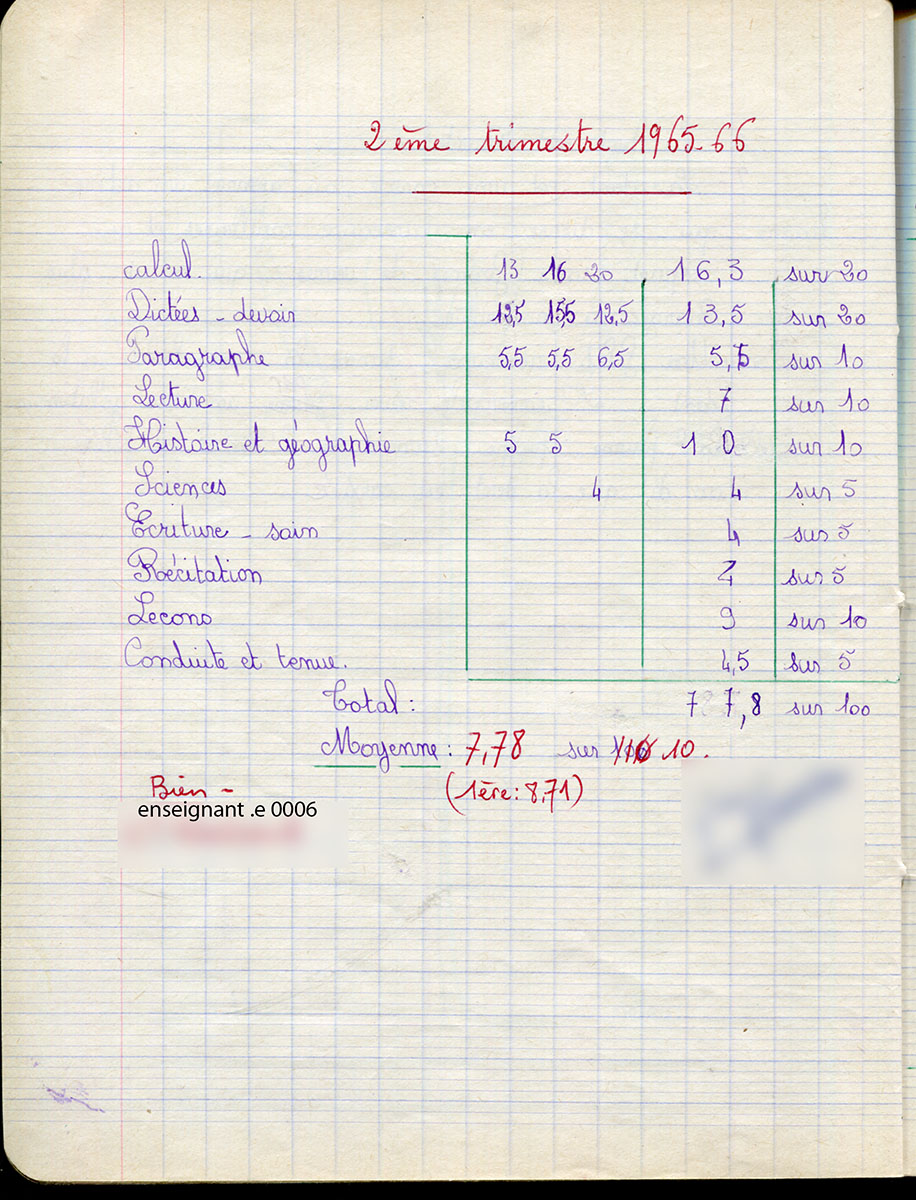 2ème trimestre 1965-66
calcul. 13 16 20 16,3 sur 20
Dictées - devoir 12,5 15,5 12,5 13,5 sur 20
Paragraphe 5,5 5,5 6,5 5,5 sur 10
Lecture 7 sur 10
Histoire et géographie 5 5 10 sur 10
Sciences 4 4 sur 5
Ecriture - soin 4 sur 5
Récitation 4 sur 5
Lecons 9 sur 10
Conduite et tenue. 4,5 sur 5
Total : 77,8 sur 100
Moyenne : 7,78 sur 10.
Bien - (1ère : 8,71)
enseignant .e 0006